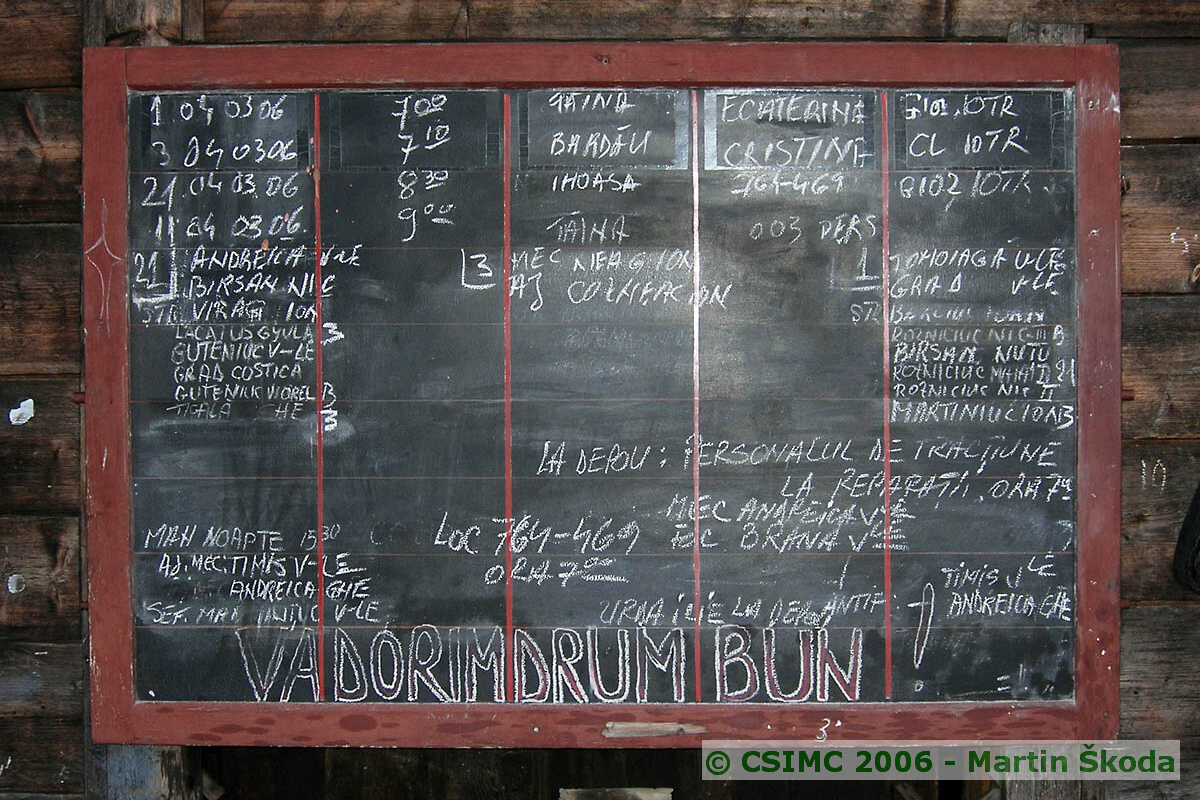 1 04 03 06 7 00 FAINA ECATERINA CL IOTR
3 04 03 06 7 10 BARDĂU CRISTINA CL IOTR
21 04 03 06 8 30 IHOASA 764-469 8102 IOTR
11 04 03 06. 9 00 FAINA 003 PERS
21 ANDREICA V-LE
BIRSAN NIC
STR VIRAG ION
LACATUS GYULA 3
GUTENIUC V-LE
GRAD COSTICA
GUTENIUC VIOREL B
TIGALA GHE 3
3 MEC NEAG ION
AJ
1 TOHOIAGĂ V-LE
GRAD V-LE
STR
BIRSAN NUTU
ROZNICIUC MIHAI 21
ROZNICIUC NIC
MARTINIUC ION 3
LA DEPOU : PERSONALUL DE TRACŢIUNE
LA REPARAŢII, ORA 7
MEC ANDREICA V-LE
LOC 764-469 EC BRANA V-LE
ORA 7
MAN NOAPTE 15 30
AJ. MEC. TIMIS V-LE
ANDREICA GHE
SEF. MAN V-LE
URDA ILIE LA DEPOU ANTIF :
TIMIS V-LE
ANDREICA GHE
VĂ DORIM DRUM BUN
3
10
© CSIMC 2006 - Martin Škoda